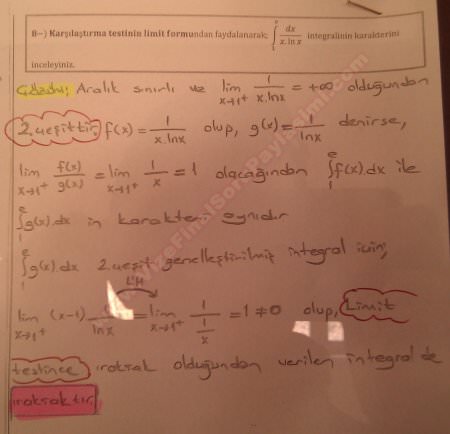 8-) Karşılaştırma testinin limit formundan faydalanarak; ∫₁ᵉ dx/(x.lnx) integralinin karakterini
inceleyiniz.
Çözüm; Aralık sınırlı ve lim x→1⁺ 1/(x.lnx) = +∞ olduğundan
2. çeşittir, f(x) = 1/(x.lnx) olup, g(x) = 1/lnx denirse,
lim x→1⁺ f(x)/g(x) = lim x→1⁺ 1/x = 1 olacağından ∫₁ᵉ f(x).dx ile
∫₁ᵉ g(x).dx in karakteri aynıdır
∫₁ᵉ g(x).dx 2. çeşit genelleştirilmiş integral için;
L'H
lim x→1⁺ (x-1) 1/lnx = lim x→1⁺ 1/(1/x) = 1 ≠ 0 olup, Limit
testince ıraksak olduğundan verilen integral de
ıraksaktır.
www.VizeFinalSoruPaylasimi.com